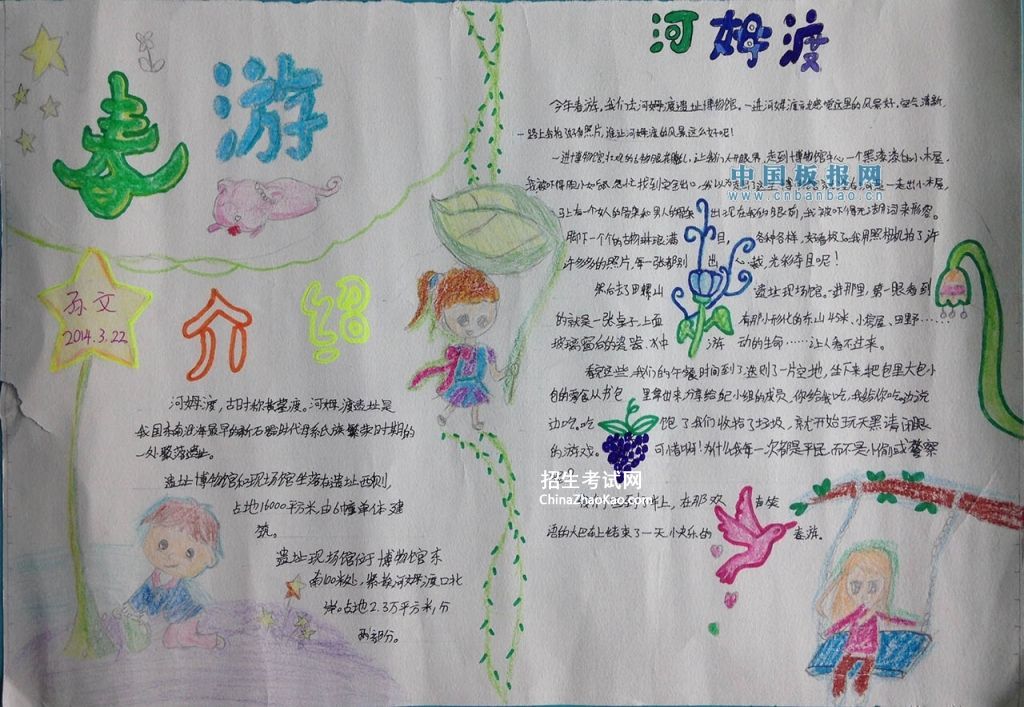 春游
河姆渡
孙文
2014.3.22
介绍
河姆渡,古时称黄墓渡。河姆渡遗址是
我国东南沿海最早的新石器时代母系氏族繁荣时期的
一处聚落遗址。
遗址博物馆和现场馆坐落在遗址西侧,
占地16000平方米,由6幢单体建
筑。
遗址现场馆位于博物馆东
南100米处,紧挨河姆渡渡口北
岸。占地2.3万平方米,分
两部分。
今年春游,我们去河姆渡遗址博物馆。一进河姆渡就感觉这里的风景好,空气清新,
一路上我拍了好多照片,谁让河姆渡的风景这么好呢!
一进博物馆,让我们大开眼界,走到博物馆中心一个黑漆漆的小木屋,
中国板报网
www.cnbanbao.cn
马上有一个女人的骨架和男人的骨架出现在我的眼前,我被吓得无法用词来形容。
脚下一个个的古物琳琅满目,各种各样,好看极了,我用照相机拍了许
许多多的照片,每一张都别出心裁,光彩夺目呢!
然后去了田螺山遗址现场馆。一进那里,第一眼看到
的就是一张桌子,上面有那小形化的东山45米、小房屋、田野……
玻璃窗后的瓷器、水中游动的生命……让人看不过来。
看完这些,我们的午餐时间到了,选则了一片空地,坐下来,把包里大包小
包的零食从书包里拿出来分享给组小组的成员,你给我吃,我给你吃,边说
边吃。吃饱了我们收拾了垃圾,就开始玩天黑请闭眼
的游戏。可惜啊!为什么我每一次都是平民,而不是小偷或警察
招生考试网
ChinaZhaoKao.com
语的大巴车上结束了一天小快乐的春游。